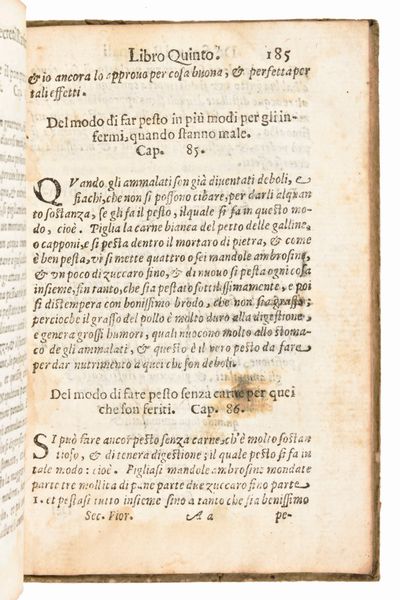 Libro Quinto. 185
& io ancora lo approuo per cosa buona, & perfetta per
tali effetti.
Del modo di far pesto in più modi per gli in-
fermi, quando stanno male.
Cap. 85.
QVando gli ammalati son già diuentati deboli, e
fiachi, che non si possono cibare, per darli alquan
to sostanza, se gli fa il pesto, il quale si fa in questo mo-
do, cioè. Piglia la carne bianca del petto delle galline,
o capponi, e si pesta dentro il mortaro di pietra, & come
è ben pesta, vi si mette quattro o sei mandole ambrosine,
& vn poco di zuccaro fino, & di nuouo si pesta ogni cosa
insieme, sin tanto, che sia pestato sottilissimamente, e poi
si distempera con bonissimo brodo, che non sia grasso;
percioche il grasso del pollo è molto duro alla digestione,
e genera grossi humori, quali nuocono molto allo stoma-
co de gli ammalati, & questo è il vero pesto da fare
per dar nutrimento a quei che son deboli.
Del modo di fare pesto senza carne per quei
che son feriti. Cap. 86.
SI può fare ancor pesto senza carne, ch'è molto sostan
tioso, & di tenera digestione; il quale pesto si fa in
tale modo: cioè. Pigliasi mandole ambrosine mondate
parte tre mollica di pane parte due zuccaro fino parte
1. et pestasi tutto insieme sino a tanto che sia benissimo
Sec. Fior. A a pe-